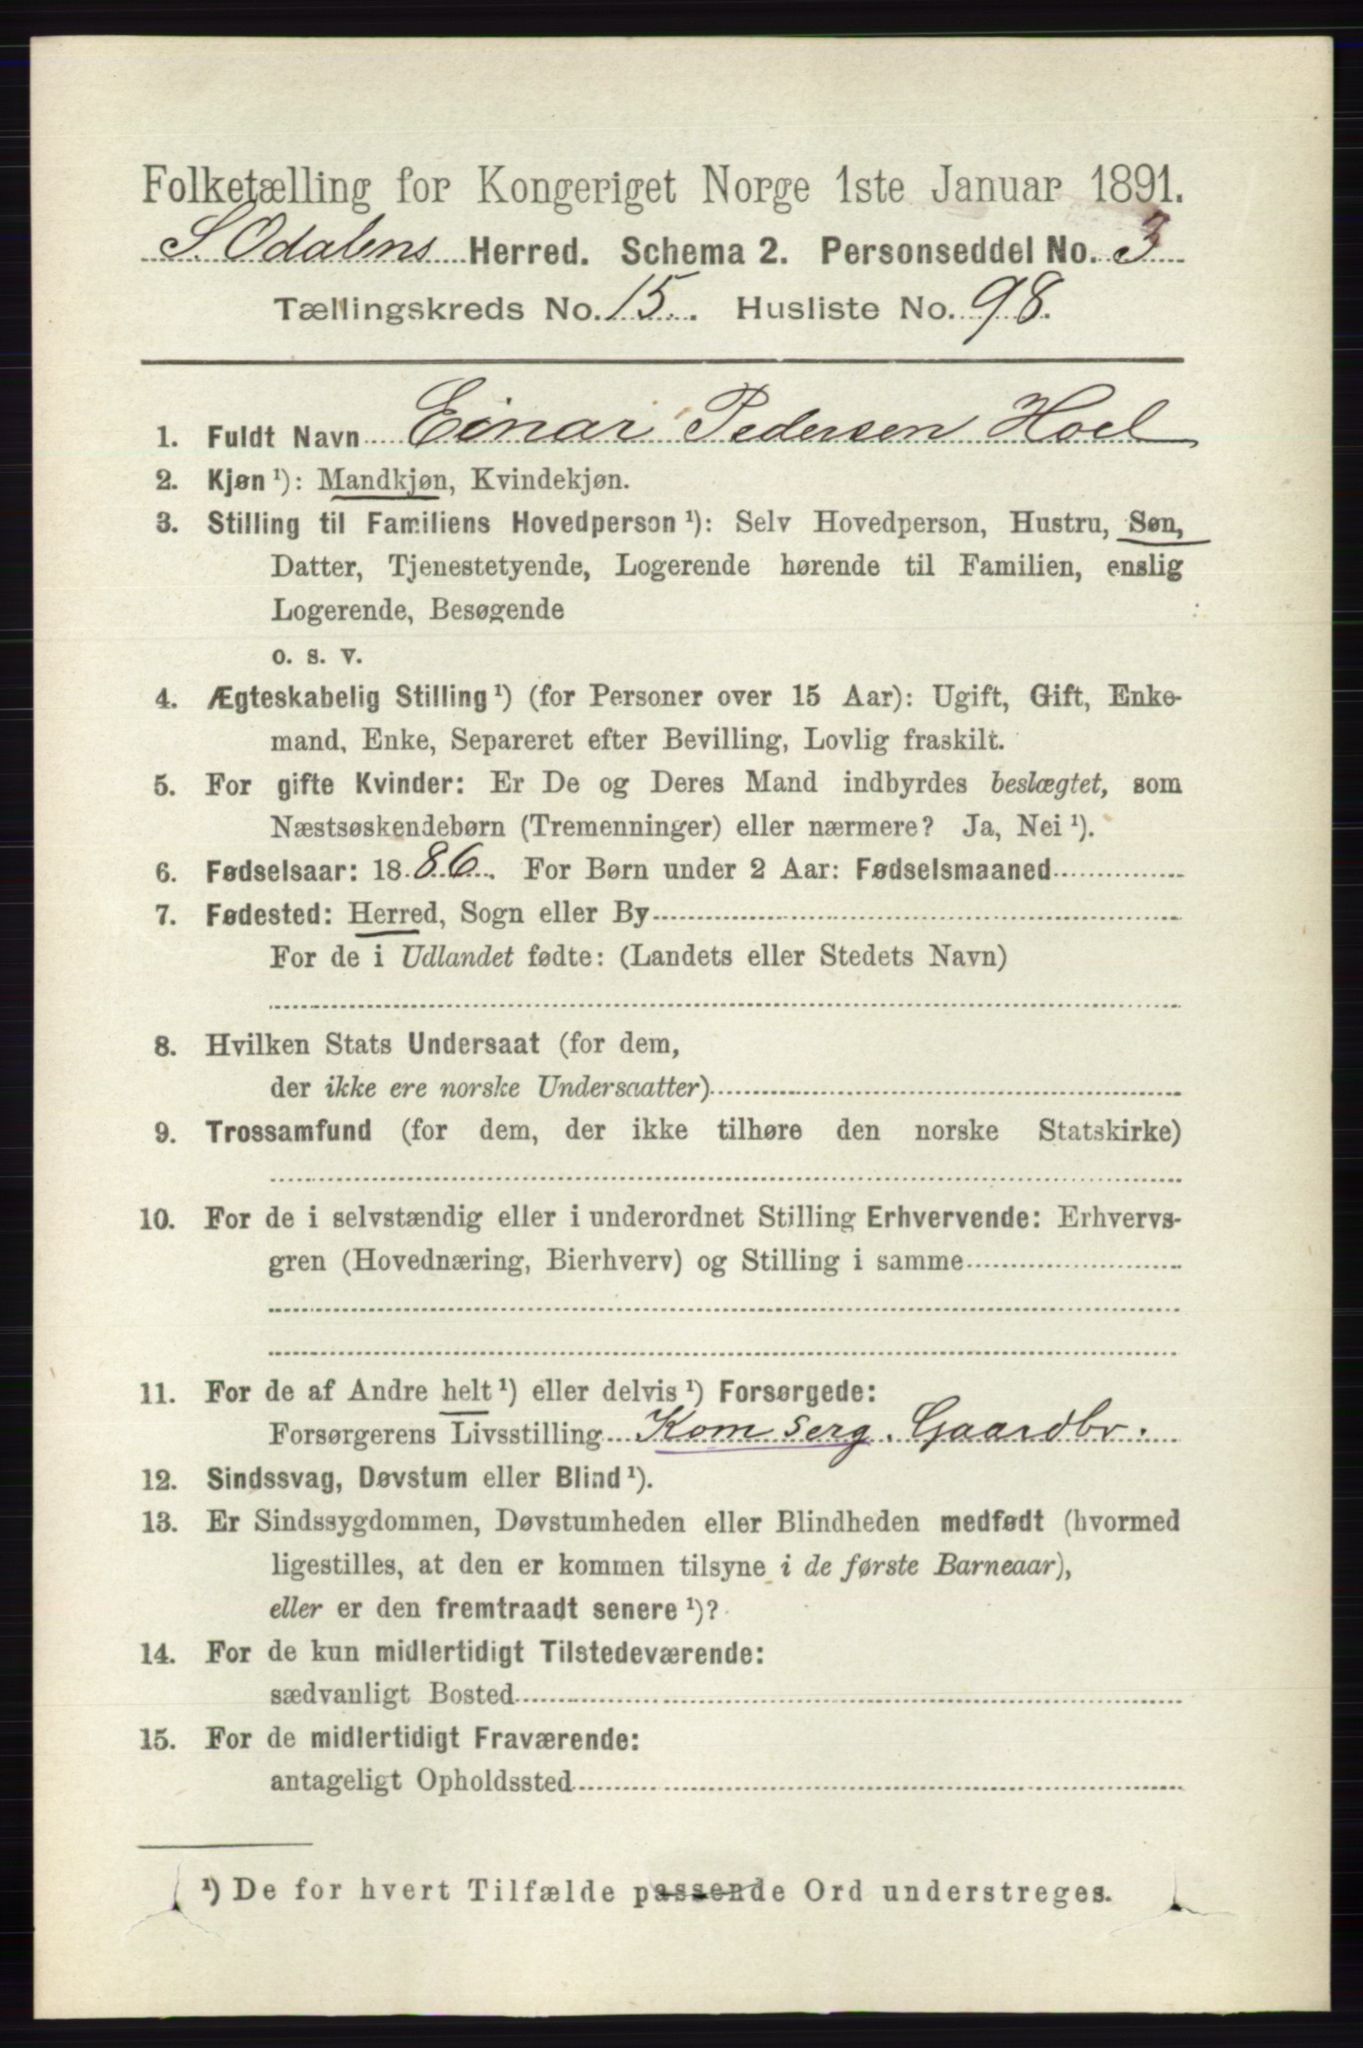 Folketælling for Kongeriget Norge 1ste Januar 1891.
S. Odalens Herred. Schema 2. Personseddel No. 3
Tællingskreds No. 15. Husliste No. 98.
1. Fuldt Navn Einar Pedersen Hoel
2. Kjøn ¹): Mandkjøn, Kvindekjøn.
3. Stilling til Familiens Hovedperson ¹): Selv Hovedperson, Hustru, Søn,
Datter, Tjenestetyende, Logerende hørende til Familien, enslig
Logerende, Besøgende
o. s. v.
4. Ægteskabelig Stilling ¹) (for Personer over 15 Aar): Ugift, Gift, Enke-
mand, Enke, Separeret efter Bevilling, Lovlig fraskilt.
5. For gifte Kvinder: Er De og Deres Mand indbyrdes beslægtet, som
Næstsøskendebørn (Tremenninger) eller nærmere? Ja, Nei ¹).
6. Fødselsaar: 1886. For Børn under 2 Aar: Fødselsmaaned
7. Fødested: Herred, Sogn eller By
For de i Udlandet fødte: (Landets eller Stedets Navn)
8. Hvilken Stats Undersaat (for dem,
der ikke ere norske Undersaatter)
9. Trossamfund (for dem, der ikke tilhøre den norske Statskirke)
10. For de i selvstændig eller i underordnet Stilling Erhvervende: Erhvervs-
gren (Hovednæring, Bierhverv) og Stilling i samme
11. For de af Andre helt ¹) eller delvis ¹) Forsørgede:
Forsørgerens Livsstilling Kom serg. Gaardbr.
12. Sindssvag, Døvstum eller Blind ¹).
13. Er Sindssygdommen, Døvstumheden eller Blindheden medfødt (hvormed
ligestilles, at den er kommen tilsyne i de første Barneaar),
eller er den fremtraadt senere ¹)?
14. For de kun midlertidigt Tilstedeværende:
sædvanligt Bosted
15. For de midlertidigt Fraværende:
antageligt Opholdssted
¹) De for hvert Tilfælde passende Ord understreges.